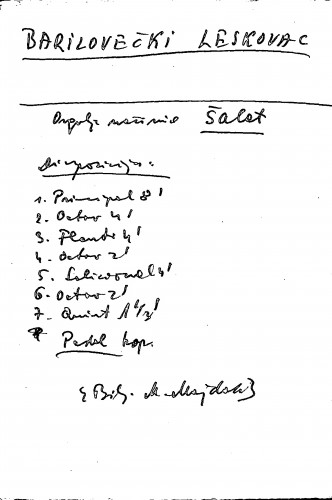 BARILOVEČKI LESKOVAC
Orgulje načinio Šalet
Dispozicija:
1. Principal 8'
2. Octav 4'
3. Flaut 4'
4. Octav 2'
5. Salicional 4'
6. Octav 2'
7. Quint 1 1/3'
Pedal kop.